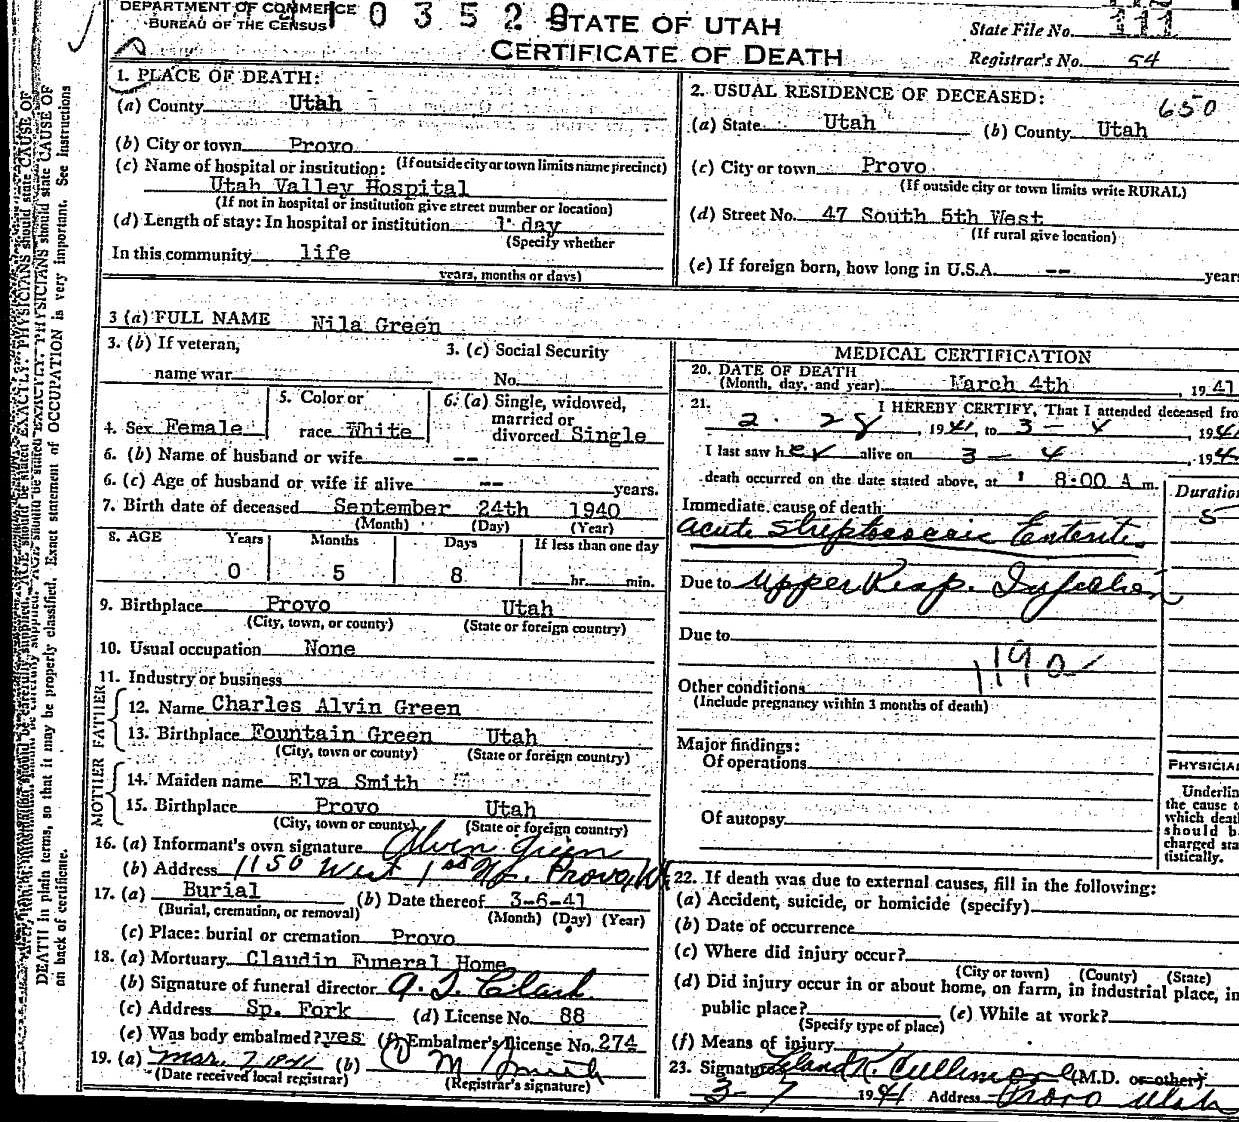 DEPARTMENT OF COMMERCE
BUREAU OF THE CENSUS
1 0 3 5 2 9
STATE OF UTAH
CERTIFICATE OF DEATH
State File No. 111
Registrar's No. 54
1. PLACE OF DEATH:
(a) County Utah
(b) City or town Provo
(If outside city or town limits name precinct)
(c) Name of hospital or institution:
Utah Valley Hospital
(If not in hospital or institution give street number or location)
(d) Length of stay: In hospital or institution 1 day
(Specify whether
In this community life
years, months or days)
2. USUAL RESIDENCE OF DECEASED:
650
(a) State Utah (b) County Utah
(c) City or town Provo
(If outside city or town limits write RURAL)
(d) Street No. 47 South 5th West
(If rural give location)
(e) If foreign born, how long in U.S.A. -- years
3 (a) FULL NAME Nila Green
3. (b) If veteran,
name war
3. (c) Social Security
No.
4. Sex Female
5. Color or
race White
6. (a) Single, widowed,
married or
divorced Single
6. (b) Name of husband or wife --
6. (c) Age of husband or wife if alive -- years.
7. Birth date of deceased September 24th 1940
(Month) (Day) (Year)
8. AGE Years Months Days If less than one day
0 5 8 hr. min.
9. Birthplace Provo Utah
(City, town, or county) (State or foreign country)
10. Usual occupation None
11. Industry or business
FATHER
12. Name Charles Alvin Green
13. Birthplace Fountain Green Utah
(City, town or county) (State or foreign country)
MOTHER
14. Maiden name Elva Smith
15. Birthplace Provo Utah
(City, town or county) (State or foreign country)
16. (a) Informant's own signature Alvin Green
(b) Address 1150 West 1st No. Provo, Ut
17. (a) Burial (b) Date thereof 3-6-41
(Burial, cremation, or removal) (Month) (Day) (Year)
(c) Place: burial or cremation Provo
18. (a) Mortuary Claudin Funeral Home
(b) Signature of funeral director A. Y. Clark
(c) Address Sp. Fork (d) License No. 88
(e) Was body embalmed? yes (f) Embalmer's License No. 274
19. (a) Mar. 7 1941 (b) M Smith
(Date received local registrar) (Registrar's signature)
MEDICAL CERTIFICATION
20. DATE OF DEATH
(Month, day, and year) March 4th 1941
21. I HEREBY CERTIFY, That I attended deceased from
2 - 28, 1941, to 3 - 4, 194
I last saw her alive on 3 - 4, 194
death occurred on the date stated above, at 8:00 A m.
Duration
Immediate cause of death
5
acute streptococcic Enteritis
Due to Upper Resp. Infection
Due to
119a
Other conditions
(Include pregnancy within 3 months of death)
Major findings:
Of operations
Of autopsy
PHYSICIAN
Underline
the cause to
which death
should be
charged sta
tistically.
22. If death was due to external causes, fill in the following:
(a) Accident, suicide, or homicide (specify)
(b) Date of occurrence
(c) Where did injury occur?
(City or town) (County) (State)
(d) Did injury occur in or about home, on farm, in industrial place, in
public place? (e) While at work?
(Specify type of place)
(f) Means of injury
23. Signature Leland K. Cullimore (M.D. or other)
3 - 7 1941 Address Provo Utah
DEATH in plain terms, so that it may be properly classified. Exact statement of OCCUPATION is very important. See Instructions
on back of certificate.